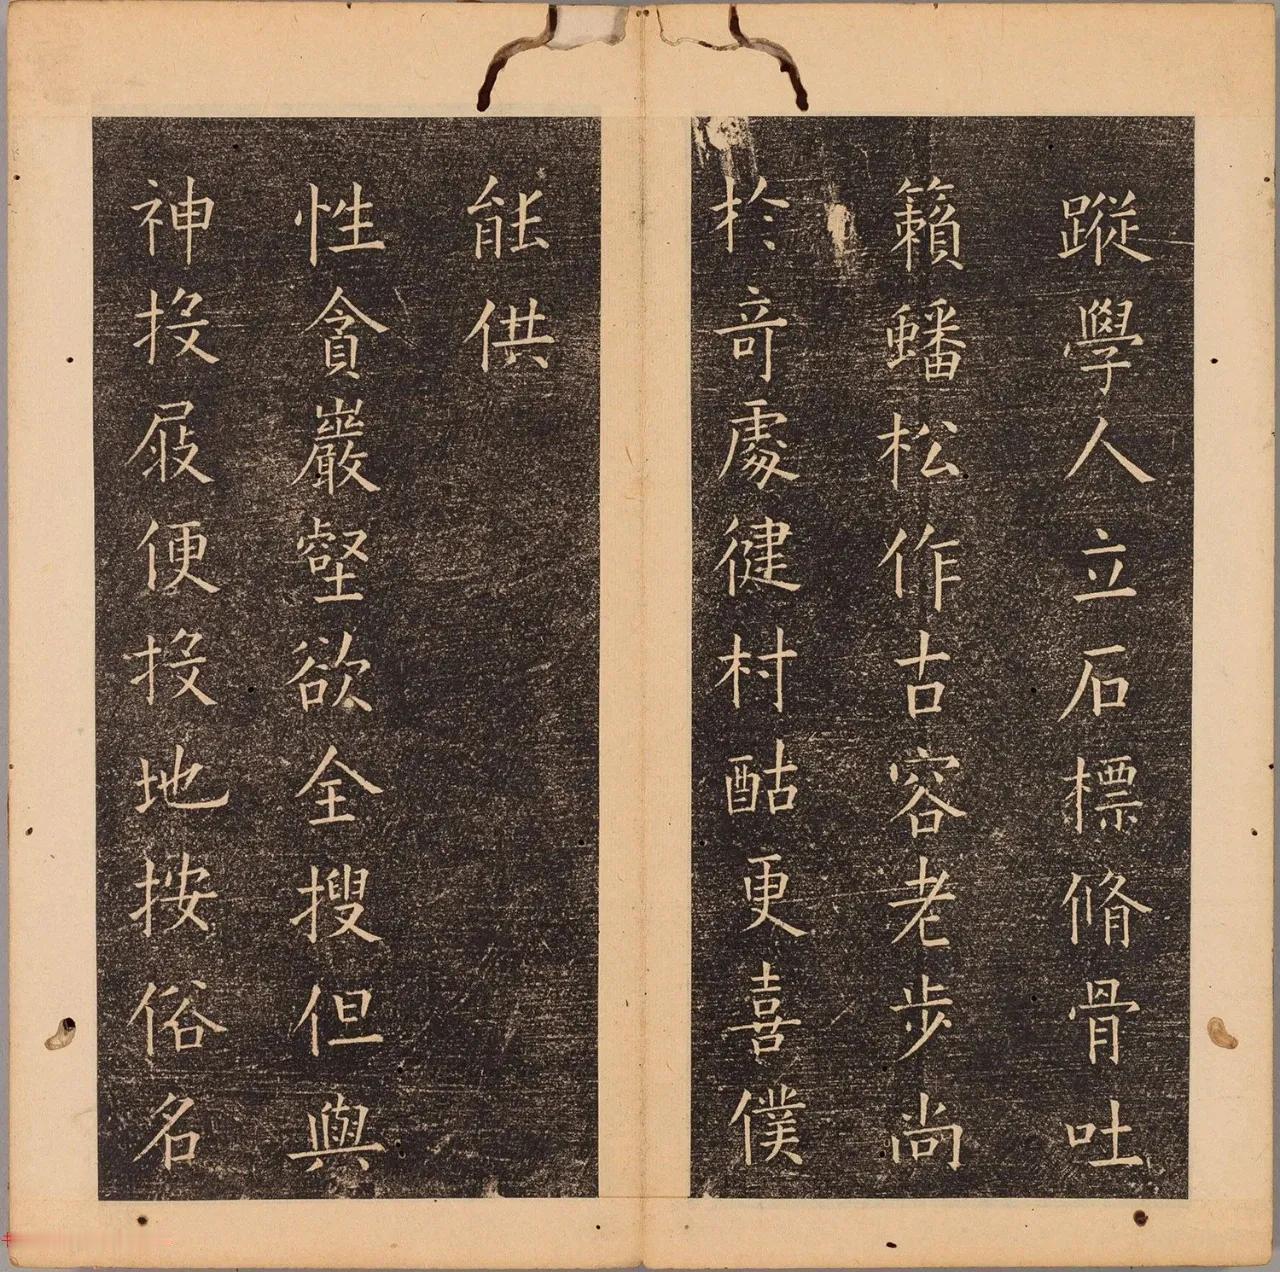 蹤學人立石標脩骨吐
籟蟠松作古容老步尚
於奇處健村酤更喜僕
能供
性貪巖壑欲全搜但與
神投屐便投地按俗名